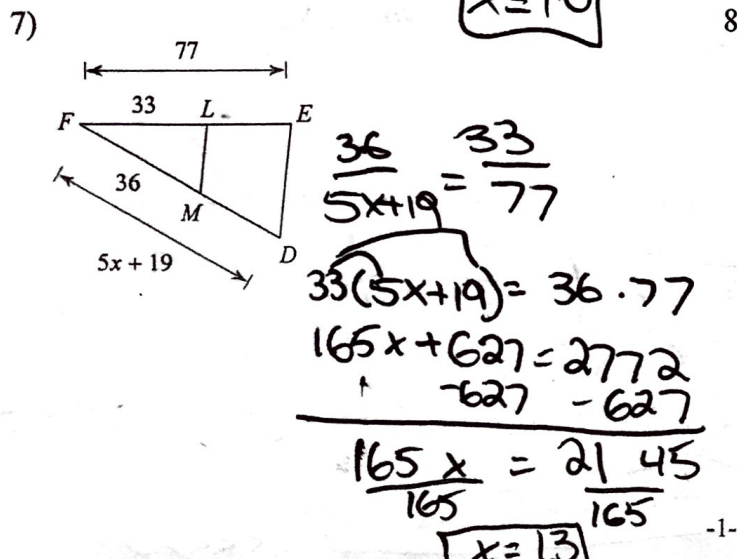 x=10
7)
8
77
F 33 L E
36
M
5x + 19
D
36/5x+19 = 33/77
33(5x+19) = 36 · 77
165x + 627 = 2772
-627 - 627
165 x / 165 = 21 45 / 165
x = 13
-1-